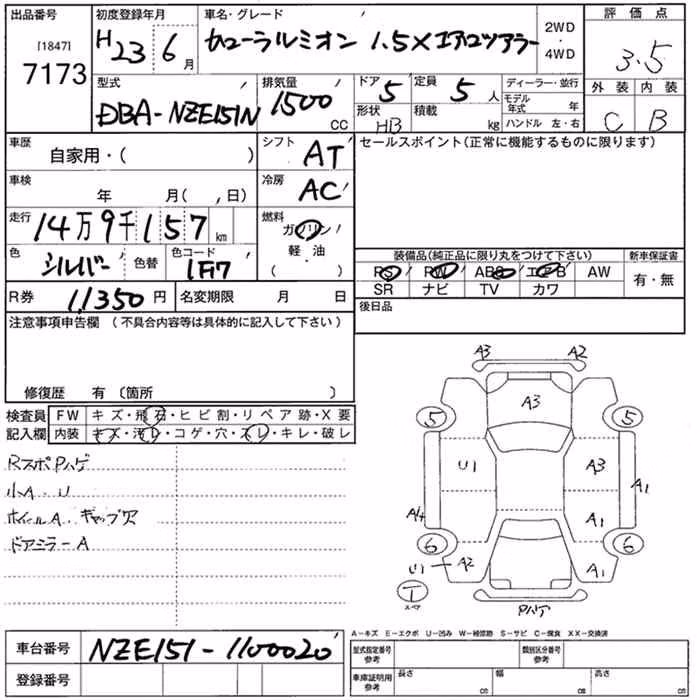 出品番号 初度登録年月 車名・グレード 評価点
[1847] H 23 6月 カローラルミオン 1.5X エアロツアラー 2WD・4WD 3.5
7173
型式 排気量 ドア 定員 ディーラー・並行 外装 内装
DBA-NZE151N 1500 CC 5 5人 モデル年式 年 C B
形状 HB 積載 kg ハンドル 左・右
車歴 シフト セールスポイント(正常に機能するものに限ります)
自家用・( ) AT
車検 冷房
年 月( , 日) AC
走行 燃料
14万9千157km ガソリン
色 色コード 軽・油
シルバー 色替 1F7 ( ・ )
装備品(純正品に限り丸をつけて下さい) 新車保証書
PS PW ABS エアB AW 有・無
SR ナビ TV カワ
R券 11,350円 名変期限 月 日 後日品
注意事項申告欄 (不具合内容等は具体的に記入して下さい)
修復歴 有 (箇所 )
検査員 FW キズ・飛石・ヒビ割・リペア跡・X要
記入欄 内装 キズ・汚レ・コゲ・穴・スレ・キレ・破レ
RスポPハゲ
小A・U
ホイールA・キャップ欠
ドアミラーA
A3 A2
A3
5 5
U1 A3 A1
A4 A1
6 6
U1 A2 A1
T スペア Pハゲ
A-キズ E-エクボ U-凹み W-補修跡 S-サビ C-腐食 XX-交換済
車台番号 NZE151-1100020
登録番号
型式指定番号参考 類別区分番号参考
車庫証明用参考 長さ cm 幅 cm 高さ cm